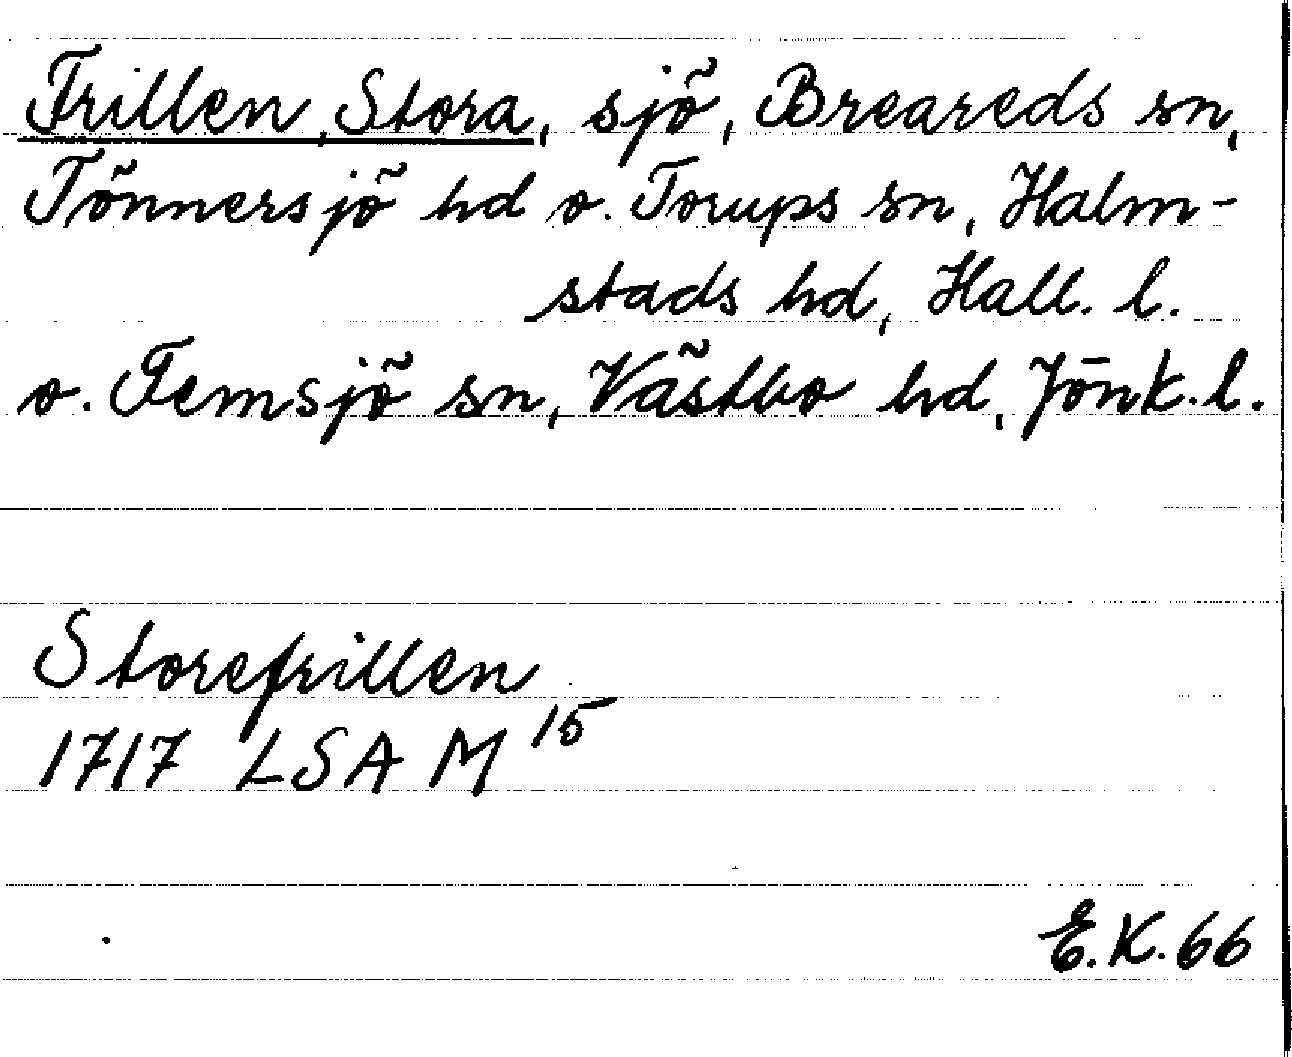 Frillen, Stora, sjö, Breareds sn,
Tönnersjö hd o. Torups sn, Halm-
stads hd, Hall. l.
o. Femsjö sn, Västbo hd, Jönk. l.
Storefrillen
1717 LSA M 15
E.K. 66